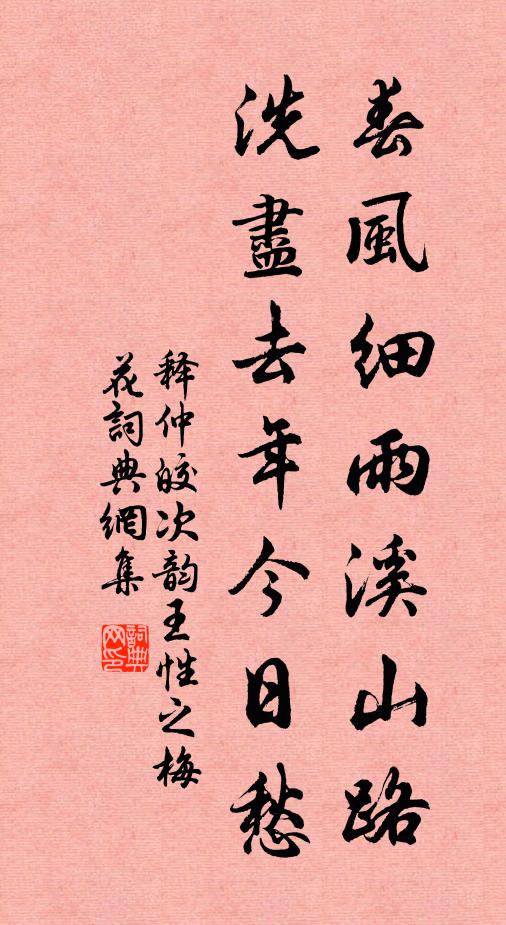 春風細雨溪山路
洗盡去年今日愁
释仲皎次韵王性之梅
花詞典網集
詞典
网印